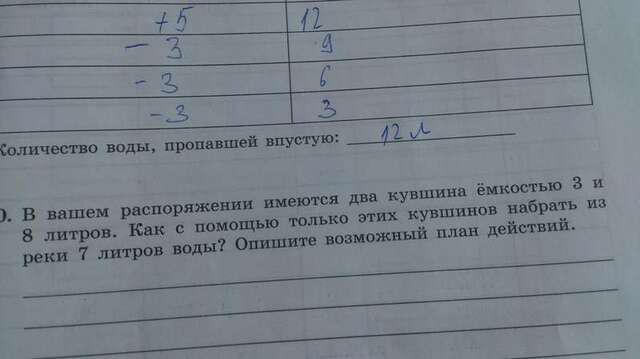 +5 12
- 3 9
- 3 6
- 3 3
Количество воды, пропавшей впустую: 12 л
0. В вашем распоряжении имеются два кувшина ёмкостью 3 и
8 литров. Как с помощью только этих кувшинов набрать из
реки 7 литров воды? Опишите возможный план действий.